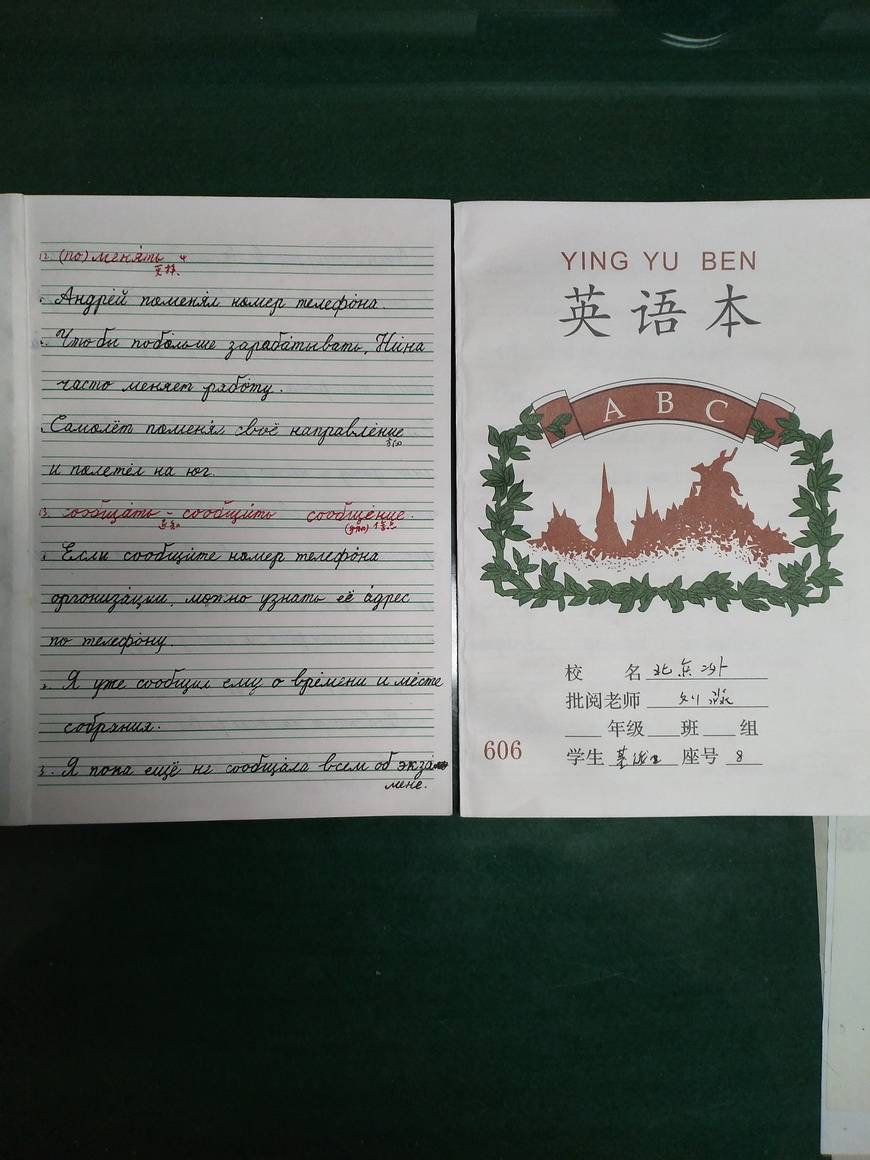 12. (по) меня́ть ч
更替、
Андре́й поменя́л но́мер телефо́на.
Чтобы побо́льше зараба́тывать, Ни́на
часто меняет рабо́ту.
Самолёт поменя́л своё направле́ние
и полетел на юг.
13. сообща́ть - сообщи́ть сообще́ние.
Если сообщи́те номер телефо́на
организа́ции, можно узнать её а́дрес
по телефо́ну.
2. Я уже сообщил ему о вре́мени и ме́сте
собра́ния.
3. Я пока ещё не сообща́ла всем об экза́
мене.
YING YU BEN
英语本
A B C
校 名 北京外
批阅老师 刘淼
年级 班 组
606
学生 座号 8